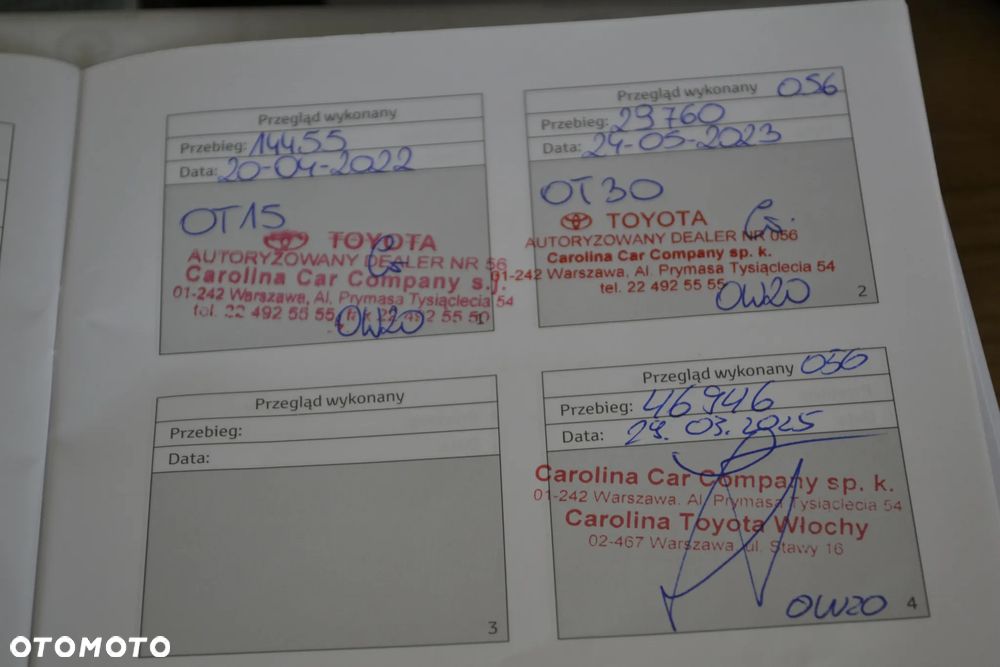 Przegląd wykonany
Przebieg: 14455
Data: 20-04-2022
OT15
TOYOTA
AUTORYZOWANY DEALER NR 56
Carolina Car Company s.j.
01-242 Warszawa, Al. Prymasa Tysiąclecia 54
tel. 22 492 55 55, fax 22 492 55 50
OW20
1
Przegląd wykonany 056
Przebieg: 29760
Data: 24-05-2023
OT30
TOYOTA
AUTORYZOWANY DEALER NR 056
Carolina Car Company sp. k.
01-242 Warszawa, Al. Prymasa Tysiąclecia 54
tel. 22 492 55 55
OW20
2
Przegląd wykonany
Przebieg:
Data:
3
Przegląd wykonany 056
Przebieg: 46946
Data: 29.03.2025
Carolina Car Company sp. k.
01-242 Warszawa. Al. Prymasa Tysiąclecia 54
Carolina Toyota Włochy
02-467 Warszawa, ul. Stawy 16
OW20
4
OTOMOTO